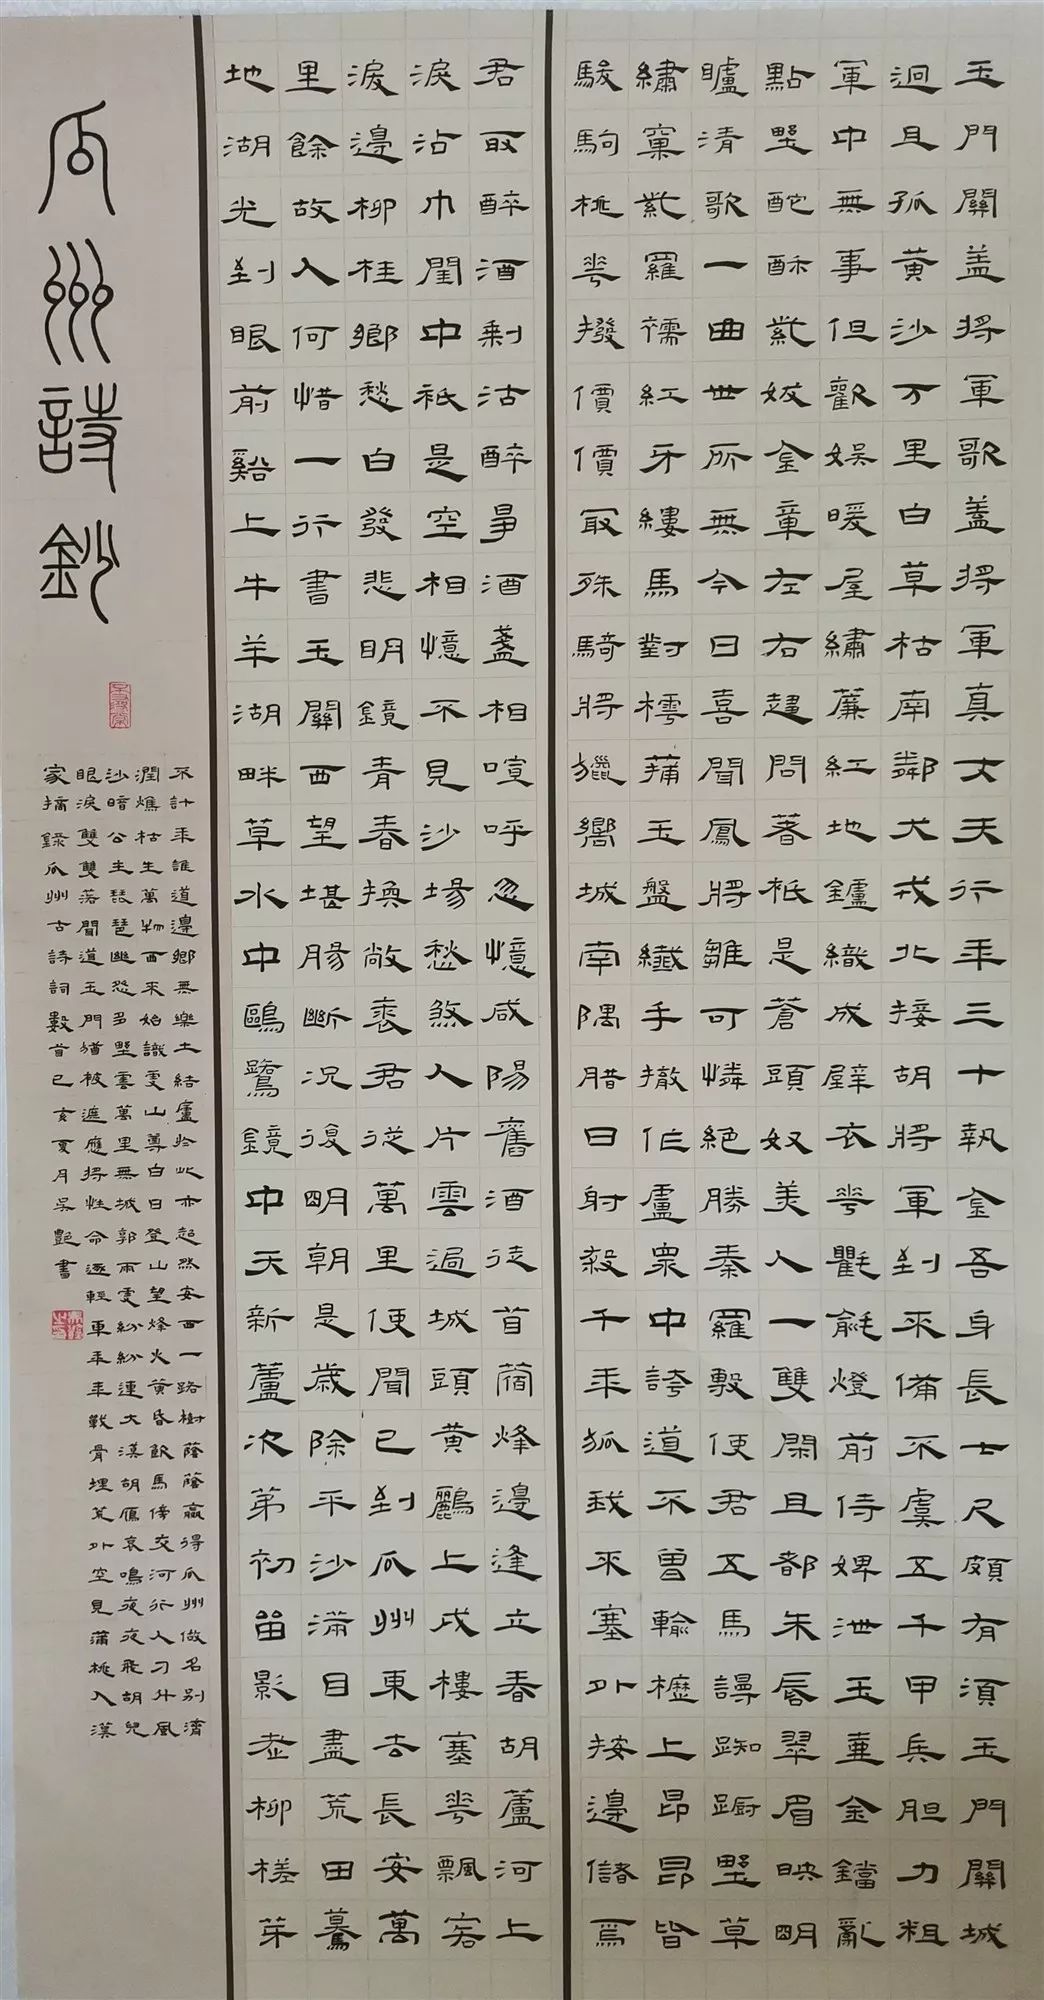 玉門關盖将軍歌盖将軍真丈夫行年三十執金吾身長七尺頗有須玉門關城
迥且孤黄沙万里白草枯南鄰犬戎北接胡将軍到来備不虞五千甲兵胆力粗
軍中無事但歡娱暖屋繡簾紅地鑪織成壁衣花氍毹燈前侍婢泄玉壷金鐺亂
點野酡酥紫紱金章左右趨問著祗是蒼頭奴美人一雙閑且都朱唇翠眉映明
矑清歌一曲世所無今日喜聞鳳将雛可憐絶勝秦羅敷使君五馬謾踟躕野草
繡窠紫羅襦紅牙縷馬對樗蒱玉盤纖手撒作盧衆中誇道不曾輸櫪上昂昂皆
駿駒桃花撥價價最殊騎将獵嚮城南隅臘日射殺千年狐我来塞外按邊儲爲
君取醉酒剩沽醉争酒盞相喧呼忽憶咸陽舊酒徒首蓿烽邊逢立春胡蘆河上
淚沾巾閨中祗是空相憶不見沙場愁煞人片雲過城頭黄鸝上戍樓塞花飄客
淚邊柳桂鄉愁白發悲明鏡青春換敝裘君從萬里使聞已到瓜州東去長安萬
里餘故人何惜一行書玉關西望堪腸斷況復明朝是歲除平沙滿目盡荒田驀
地湖光到眼前谿上牛羊湖畔草水中鷗鷺鏡中天新蘆次第初留影老柳槎芽
瓜州詩鈔
不計年誰道邊鄉無樂土結廬於此亦超然安西一路樹蔭蔭贏得瓜州做名别濟
潤燋枯生萬物西来始識雪山尊白日登山望烽火黄昏飲馬傍交河行人刁斗風
沙暗公主琵琶幽怨多野雲萬里無城郭雨雪紛紛連大漠胡雁哀鳴夜夜飛胡兒
眼淚雙雙落聞道玉門猶被遮應将性命逐輕車年年戰骨埋荒外空見蒲桃入漢
家摘録瓜州古詩詞數首己亥夏月吴艷書